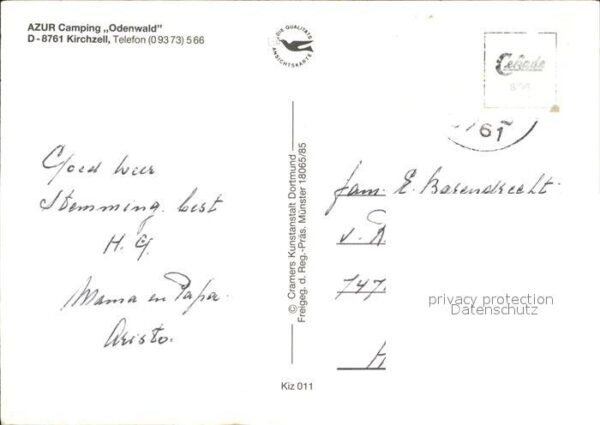 AZUR Camping „Odenwald"
D-8761 Kirchzell, Telefon (0 93 73) 5 66
DIE QUALITÄTS
ANSICHTSKARTE
Cekade
61
Goed weer
Stemming best
H. G.
Mama en Papa.
Aristo.
© Cramers Kunstanstalt Dortmund
Freigeg. d. Reg.-Präs. Münster 18065/85
fam. E. Barendrecht
v. R
747.
H
privacy protection
Datenschutz
Kiz 011